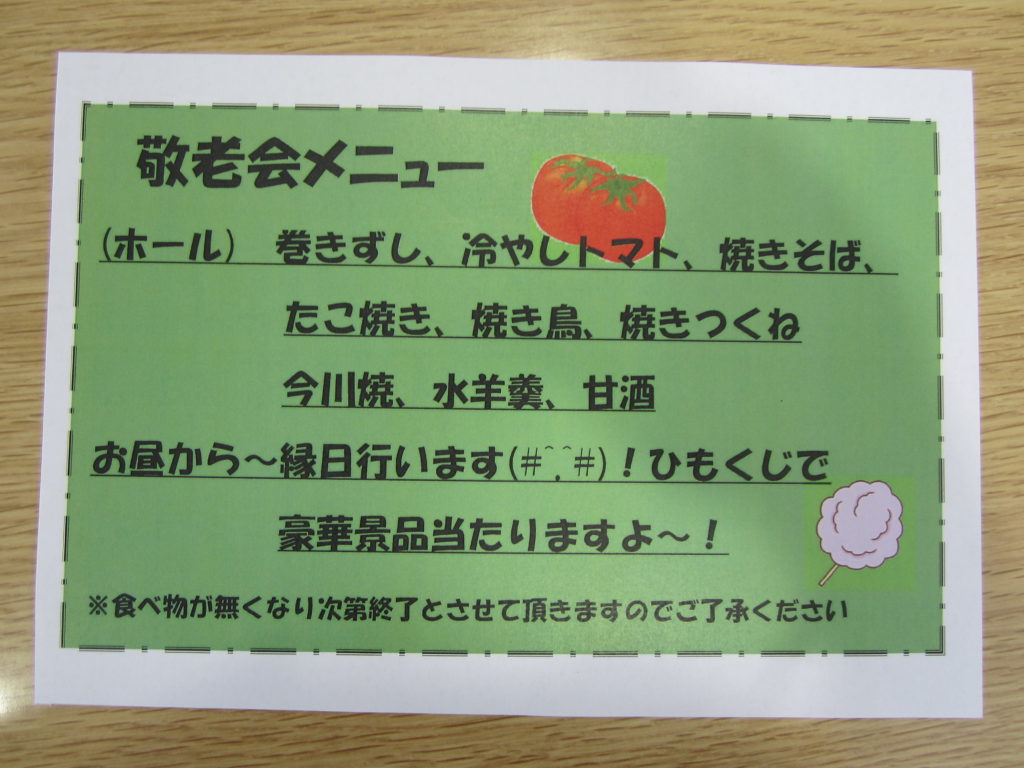 敬老会メニュー
(ホール) 巻きずし、冷やしトマト、焼きそば、
たこ焼き、焼き鳥、焼きつくね
今川焼、水羊羹、甘酒
お昼から～縁日行います(#^.^#)！ひもくじで
豪華景品当たりますよ～！
※食べ物が無くなり次第終了とさせて頂きますのでご了承ください